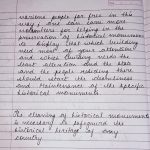 various people for free in this
way, and can earn more
volunteers for helping in the
preservation of historical monuments
to display that which building
need most of your attention
and which building needs the
least attention and the staff
and the people visiting there
should check the cleanliness
and Maintenance of the specific
historical monuments
The cleaning of historical monuments
is necessary to safeguard the
historical heritage of any
country